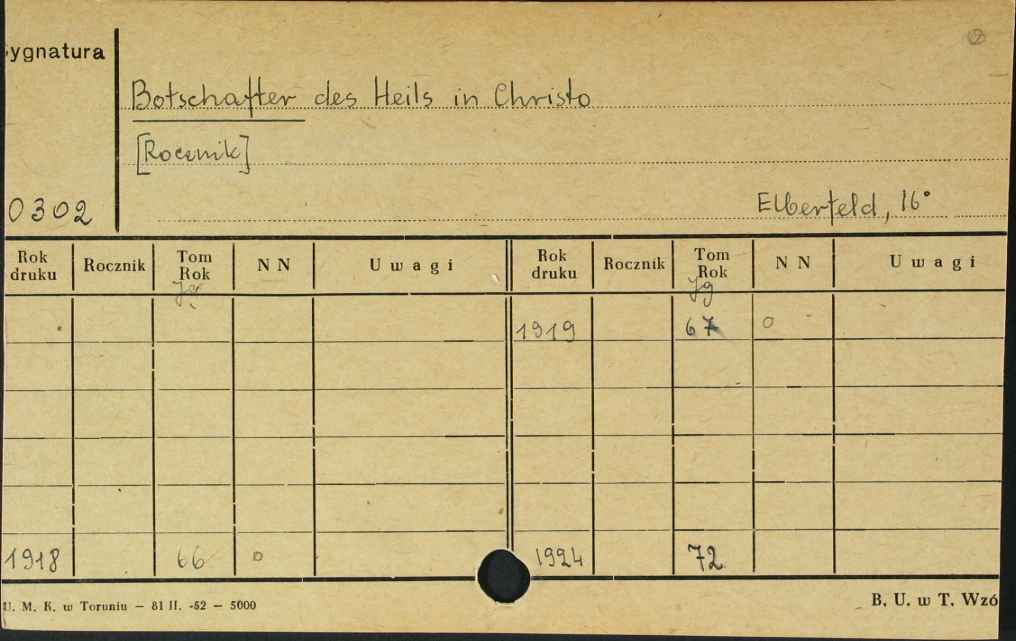 Sygnatura
Botschafter des Heils in Christo
[Rocznik]
0302
Elberfeld, 16°
Rok druku Rocznik Tom Rok Jg NN Uwagi Rok druku Rocznik Tom Rok Jg NN Uwagi
1919 67 0
1918 66 0 1924 72
U. M. K. w Toruniu — 81 II. -52 — 5000 B. U. w T. Wzó